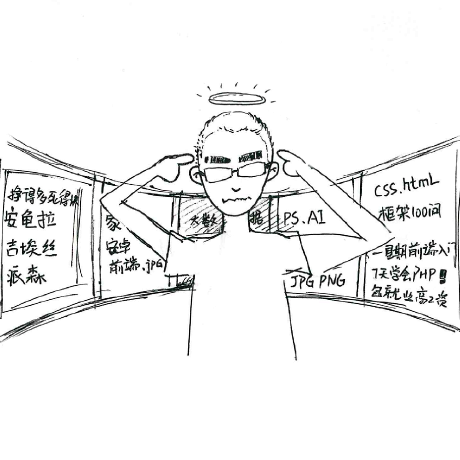 挣得多死得快
安卓拉
吉埃丝
派森
家
安卓
前端.jpg
大数
据
PS.AI
JPG PNG
css.html
框架100问
一星期前端入门
7天学会PHP
包就业高工资